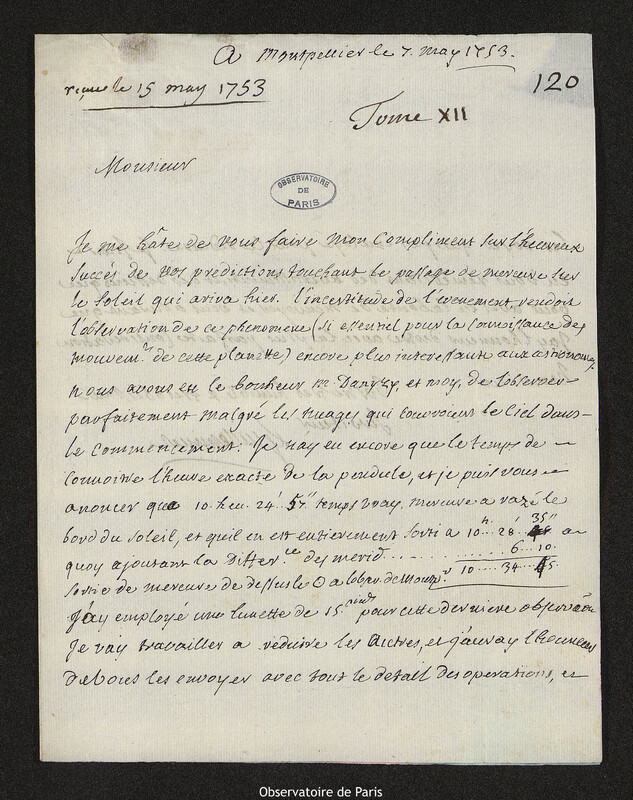 A Montpellier le 7. may 1753.
reçue le 15 may 1753
120
Tome XII
Monsieur
OBSERVATOIRE
DE
PARIS
Je me hâte de vous faire mon Compliment sur l'heureux
succés de vos predictions touchant le passage de mercure sur
le soleil qui ariva hier. l'incertitude de l'evenement rendoit
l'observation de ce phenomene (si essentiel pour la connoissance des
mouvem.ts de cette planette) encore plus interessante aux astronomes.
nous avons eu le bonheur Mr. Danyzy, et moy, de l'observer
parfaitement malgré les nuages qui couvroient le Ciel dans
le commencement. Je n'ay eu encore que le temps de
connoitre l'heure exacte de la pendule, et je puis vous
anoncer que 10 heu. 24' 57" temps vray. mercure a razé le
bord du soleil, et qu'il en est entierement sorti a 10h... 28'... 35" au
quoy ajoutant la Differ.ce des merid. . . . . . . . . 6... 10.
sortie de mercure de dessus le ⊙ a l'obser. de 10... 34... 45.
J'ay employé une lunette de 15 pieds pour cette derniere observaôn
Je vay travailler a reduire les autres, et j'auray l'honneur
de Vous les envoyer avec tout le detail des operations, et
Observatoire de Paris